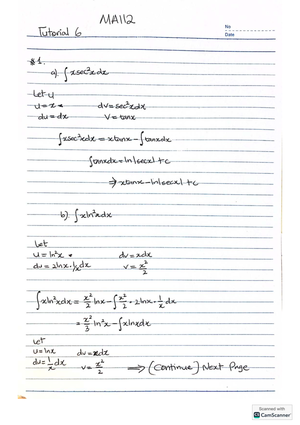 MA112
Tutorial 6
No
Date
1.
a) ∫xsec²xdx
Let u
u=x dv=sec²xdx
du=dx v=tanx
∫xsec²xdx = xtanx - ∫tanxdx
∫tanxdx = ln|secx| + c
⇒ xtanx - ln|secx| + c
b) ∫xln²xdx
Let
u=ln²x dv=xdx
du=2lnx·1/x dx v=x²/2
∫xln²xdx = x²/2 lnx - ∫x²/2 · 2lnx · 1/x dx
= x²/ ln²x - ∫xlnxdx
Let
u=lnx dv=xdx
du=1/x dx v=x²/2 ⇒ (Continue) Next Page
Scanned with
CS CamScanner